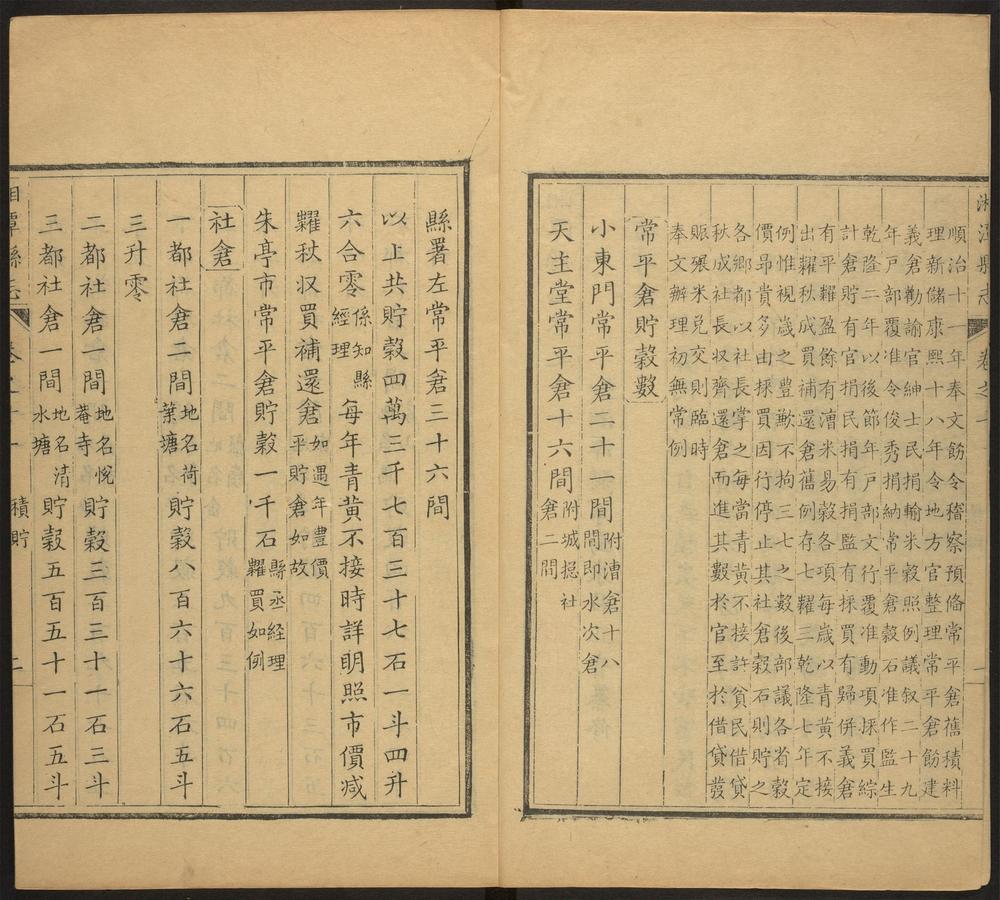 湘潭縣志 卷之十 一
順治十一年奉文飭令稽察預備常平倉舊積料
理新儲康熙十八年令地方官整理常平倉飭建
義倉勸諭官紳士民捐輸米穀照例議叙二十九
年戶部覆准令俊秀捐納常平倉穀石准作監生
乾隆二年以後節年戶部文行覆准動項採買綜
計倉貯有官捐民捐有捐監有採買有歸併義倉
有平糶盈餘有漕米易穀各項每歲以青黃不接
出糶秋成買補還倉舊例存七糶三乾隆七年定
例惟視歲之豐歉不拘三七之數後部議各省穀
價昻貴多由採買因行停止其社倉穀石則貯之
各鄉都以社長掌之每當青黃不接許貧民借貸
秋成社長収齊還倉而進其數於官至於借貸發
賑碾米兌交則臨時
奉文辦理初無常例
常平倉貯穀數
小東門常平倉二十一間附漕倉十八間即水次倉
天主堂常平倉十六間附城捴社倉二間
縣署左常平倉三十六間
以上共貯穀四萬三千七百三十七石一斗四升
六合零係知縣經理每年青黃不接時詳明照市價减
糶秋収買補還倉如遇年豐價平貯倉如故
朱亭市常平倉貯穀一千石縣丞経理糶買如例
社倉
一都社倉二間地名荷葉塘貯穀八百六十六石五斗
三升零
二都社倉一間地名悅菴寺貯穀三百三十一石三斗
三都社倉一間地名清水塘貯穀五百五十一石五斗
潭縣志 積貯 二